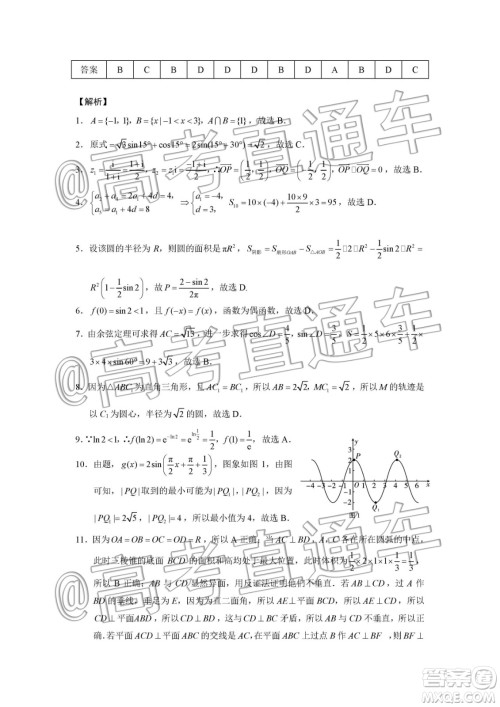 答案 B C B D D D D B D A D D C
【解析】
1. A={-1, 1}, B={x | -1<x<3}, A∩B={1}, 故选 B.
2. 原式=√3sin15°+cos15°=2sin(15°+30°)=√2, 故选 C.
3. z₁=i/(1+i)=(1+i)/2, z₂=z₁i=(-1+i)/2, ∴OP=(1/2, 1/2), OQ=(-1/2, 1/2), OP·OQ=0, 故选
4. {a₂+a₄=2a₁+4d=4, a₃+a₅=2a₁+6d=8 ⇒ {a₁=-4, d=3, S₁₀=10×(-4)+(10×9)/2×3=95, 故选
5. 设该圆的半径为 R, 则圆的面积是 πR², S阴影=S扇形OAB-S△AOB=
R²(1-1/2 sin2), 故 P=(2-sin2)/2π, 故选 D.
6. f(0)=sin2<1, 且 f(-x)=f(x), 函数为偶函数, 故选 D.
7. 由余弦定理可求得 AC=√13, 进一步求得 cos∠D=4/5, sin∠D=3/5, S=1/2×5×6×3/5+1/2×
3×4×sin60°=9+3√3, 故选 D.
8. 因为△ABC₁为直角三角形, AC₁=BC₁=2, 所以 AB=2√2, MC₁=√2, 所以 M 的轨迹是
以 C₁ 为圆心, 半径为√2的圆, 故选 D.
9. ∵ln2<1, ∴f(ln2)=e^(-ln2)=e^(ln 1/2)=1/2, f(1)=1/e, 故选 A.
10. 由题, g(x)=2sin(π/2 x+π/2+1/3), 图象如图 1, 由图象
可知, |PQ|取到的最小值可能为|PQ₁|, |PQ₂|, 因为
|PQ₁|=2√5, |PQ₂|=4, 所以最小值为 4, 故选
-4 -3 -2 -1 1 2 3 4 5 6 x
y P Q₁ Q₂
图 1
11. 因为 OA=OB=OC=OD, 所以 A 正确; 当 AC⊥BD, A、C 各在所在圆弧的中点,
此时三棱锥的底面 BCD 的面积和高均处于最大位置, 此时体积为 1/2×2×1×1×1/3=1/3,
所以 B 正确; AB 与 CD 显然异面, 用反证法证明他们不垂直. 若 AB⊥CD, 过 A 作
BD 的垂线, 垂足为 E, 因为为直二面角, 所以 AE⊥平面 BCD, 所以 AE⊥CD, 所以
CD⊥平面ABD, 所以 CD⊥BD, 这与∠BCD=π/2 矛盾, 所以 C 正确; 若平面
ACD⊥平面 ABC, 因为平面 ACD⊥平面 ABC 的交线是 AC, 所以作 BF⊥AC 于 BF, 则有 BF⊥